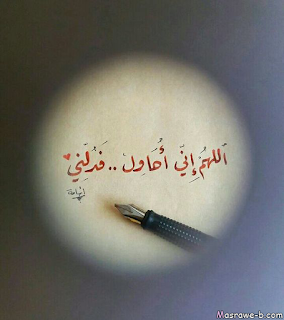 اللهُمَّ إِنّي أُحَاوِلْ .. فَدُلَّنِي
Masrawe-b.com